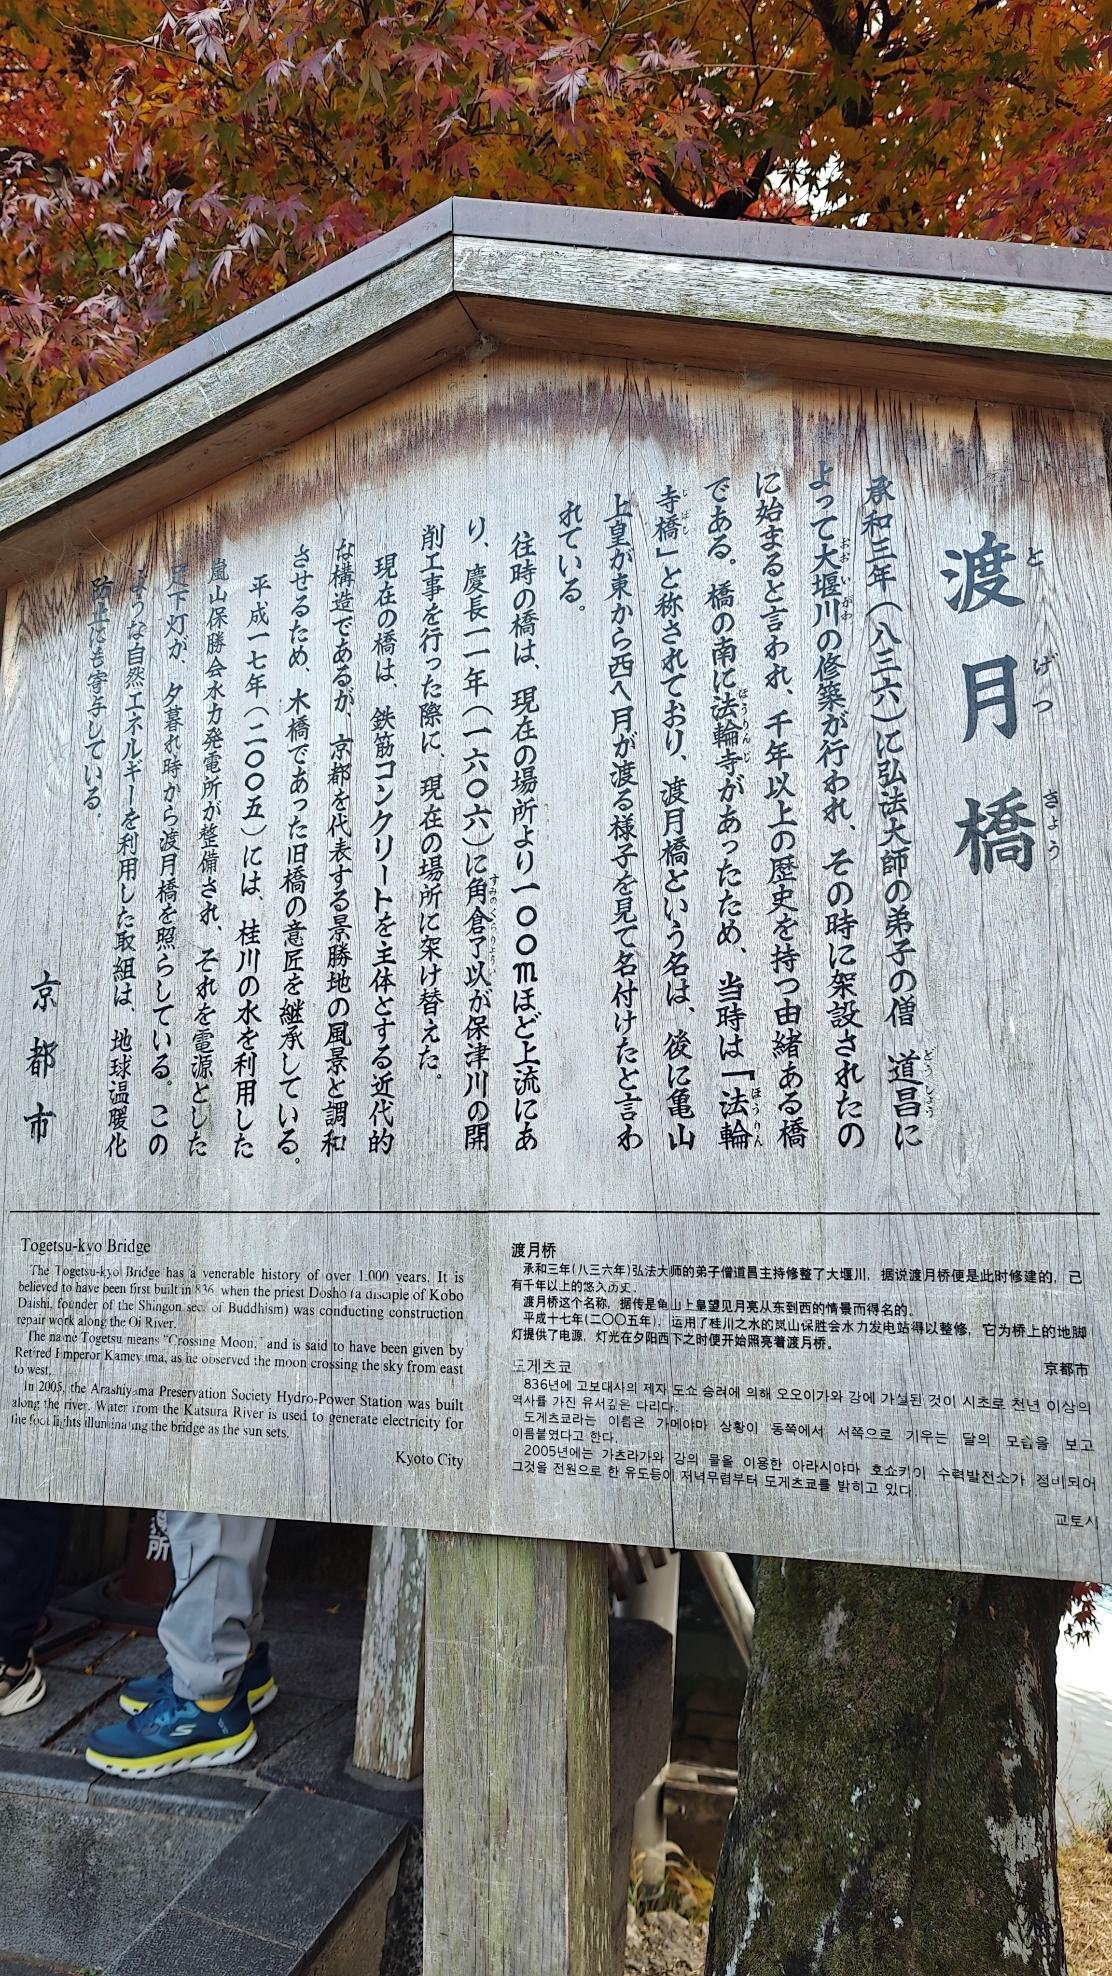 渡月橋
とげつきょう
承和三年(八三六)に弘法大師の弟子の僧 道昌に
よって大堰川の修築が行われ、その時に架設されたの
に始まると言われ、千年以上の歴史を持つ由緒ある橋
である。橋の南に法輪寺があったため、当時は「法輪
寺橋」と称されており、渡月橋という名は、後に亀山
上皇が東から西へ月が渡る様子を見て名付けたと言わ
れている。
往時の橋は、現在の場所より一〇〇mほど上流にあ
り、慶長一一年(一六〇六)に角倉了以が保津川の開
削工事を行った際に、現在の場所に架け替えた。
現在の橋は、鉄筋コンクリートを主体とする近代的
な構造であるが、京都を代表する景勝地の風景と調和
させるため、木橋であった旧橋の意匠を継承している。
平成一七年(二〇〇五)には、桂川の水を利用した
嵐山保勝会水力発電所が整備され、それを電源とした
足下灯が、夕暮れ時から渡月橋を照らしている。この
ような自然エネルギーを利用した取組は、地球温暖化
防止にも寄与している。
京都市
Togetsu-kyo Bridge
The Togetsu-kyo Bridge has a venerable history of over 1,000 years. It is
believed to have been first built in 836, when the priest Dosho (a disciple of Kobo
Daishi, founder of the Shingon sect of Buddhism) was conducting construction
repair work along the Oi River.
The name Togetsu means "Crossing Moon," and is said to have been given by
Retired Emperor Kameyama, as he observed the moon crossing the sky from east
to west.
In 2005, the Arashiyama Preservation Society Hydro-Power Station was built
along the river. Water from the Katsura River is used to generate electricity for
the foot lights illuminating the bridge as the sun sets.
Kyoto City
渡月桥
承和三年(八三六年)弘法大师的弟子僧道昌主持修整了大堰川，据说渡月桥便是此时修建的，已
有千年以上的悠久历史。
渡月桥这个名称，据传是龟山上皇望见月亮从东到西的情景而得名的。
平成十七年(二〇〇五年)，运用了桂川之水的岚山保胜会水力发电站得以整修，它为桥上的地脚
灯提供了电源，灯光在夕阳西下之时便开始照亮着渡月桥。
京都市
도게츠쿄
836년에 고보대사의 제자 도쇼 승려에 의해 오오이가와 강에 가설된 것이 시초로 천년 이상의
역사를 가진 유서깊은 다리다.
도게츠쿄라는 이름은 가메야마 상황이 동쪽에서 서쪽으로 기우는 달의 모습을 보고
이름붙였다고 한다.
2005년에는 가츠라가와 강의 물을 이용한 아라시야마 호쇼카이 수력발전소가 정비되어
그것을 전원으로 한 유도등이 저녁무렵부터 도게츠쿄를 밝히고 있다.
교토시
所